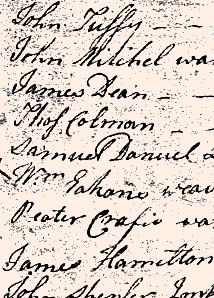 John Tuffy — —
John Mitchel wa
James Dean — —
Thos Colman —
Samuel Danuel
Wm Gahane weav
Peater Crafie wa
James Hamilton
John Spenler